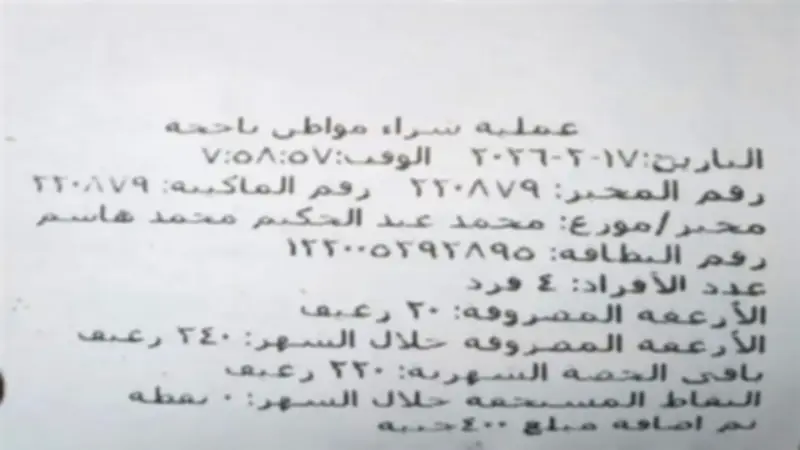 عملية شراء مواطن ناجحة
التاريخ:١٧-٢-٢٠٢٦ الوقت:٧:٥٨:٥٧
رقم المخبز: ٢٢٠٨٧٩ رقم الماكينة: ٢٢٠٨٧٩
مخبز/موزع: محمد عبد الحكيم محمد هاشم
رقم البطاقة: ١٢٢٠٠٥٢٩٢٨٩٥
عدد الأفراد: ٤ فرد
الأرغفه المصروفة: ٢٠ رغيف
الأرغفه المصروفه خلال الشهر: ٢٤٠ رغيف
باقى الحصة الشهرية: ٢٢٠ رغيف
النقاط المستحقه خلال الشهر: ٠ نقطه
تم اضافه مبلغ ٤٠٠جنيه